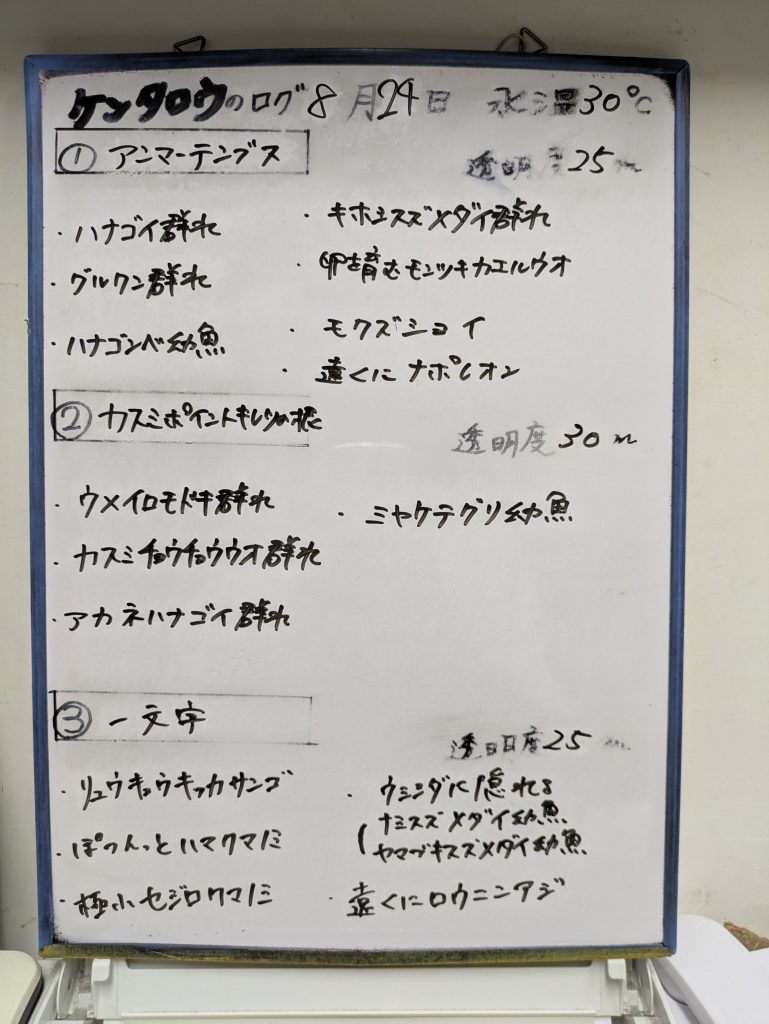 ケンタロウのログ 8月24日 水温30℃
① アンマーテングス
透明度25m
・ハナゴイ群れ
・グルクン群れ
・ハナゴンベ幼魚
・キホシスズメダイ群れ
・卵育むモンツキカエルウオ
・モクズショイ
・遠くにナポレオン
② カスミポイントキレツの根
透明度30m
・ウメイロモドキ群れ
・カスミチョウチョウウオ群れ
・アカネハナゴイ群れ
・ミヤケテグリ幼魚
③ 一文字
透明度25m
・リュウキュウキッカサンゴ
・ぽつんっとハマクマノミ
・極小セジロクマノミ
・ウミシダに隠れる
ナミスズメダイ幼魚
ヤマブキスズメダイ幼魚
・遠くにロウニンアジ